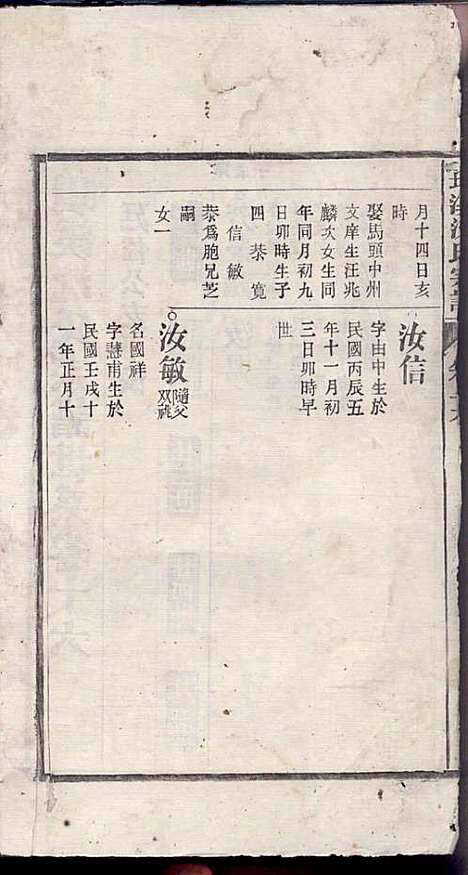 月十四日亥
時
娶馬頭中州
文庠生汪兆
麟次女生同
年同月初九
日卯時生子
四 恭 寬
信 敏
恭爲胞兄芝
嗣
女一
汝信
字由中生於
民國丙辰五
年十一月初
三日卯時早
世
汝敏 隨父双祧
名國祥
字慧甫生於
民國壬戌十
一年正月十